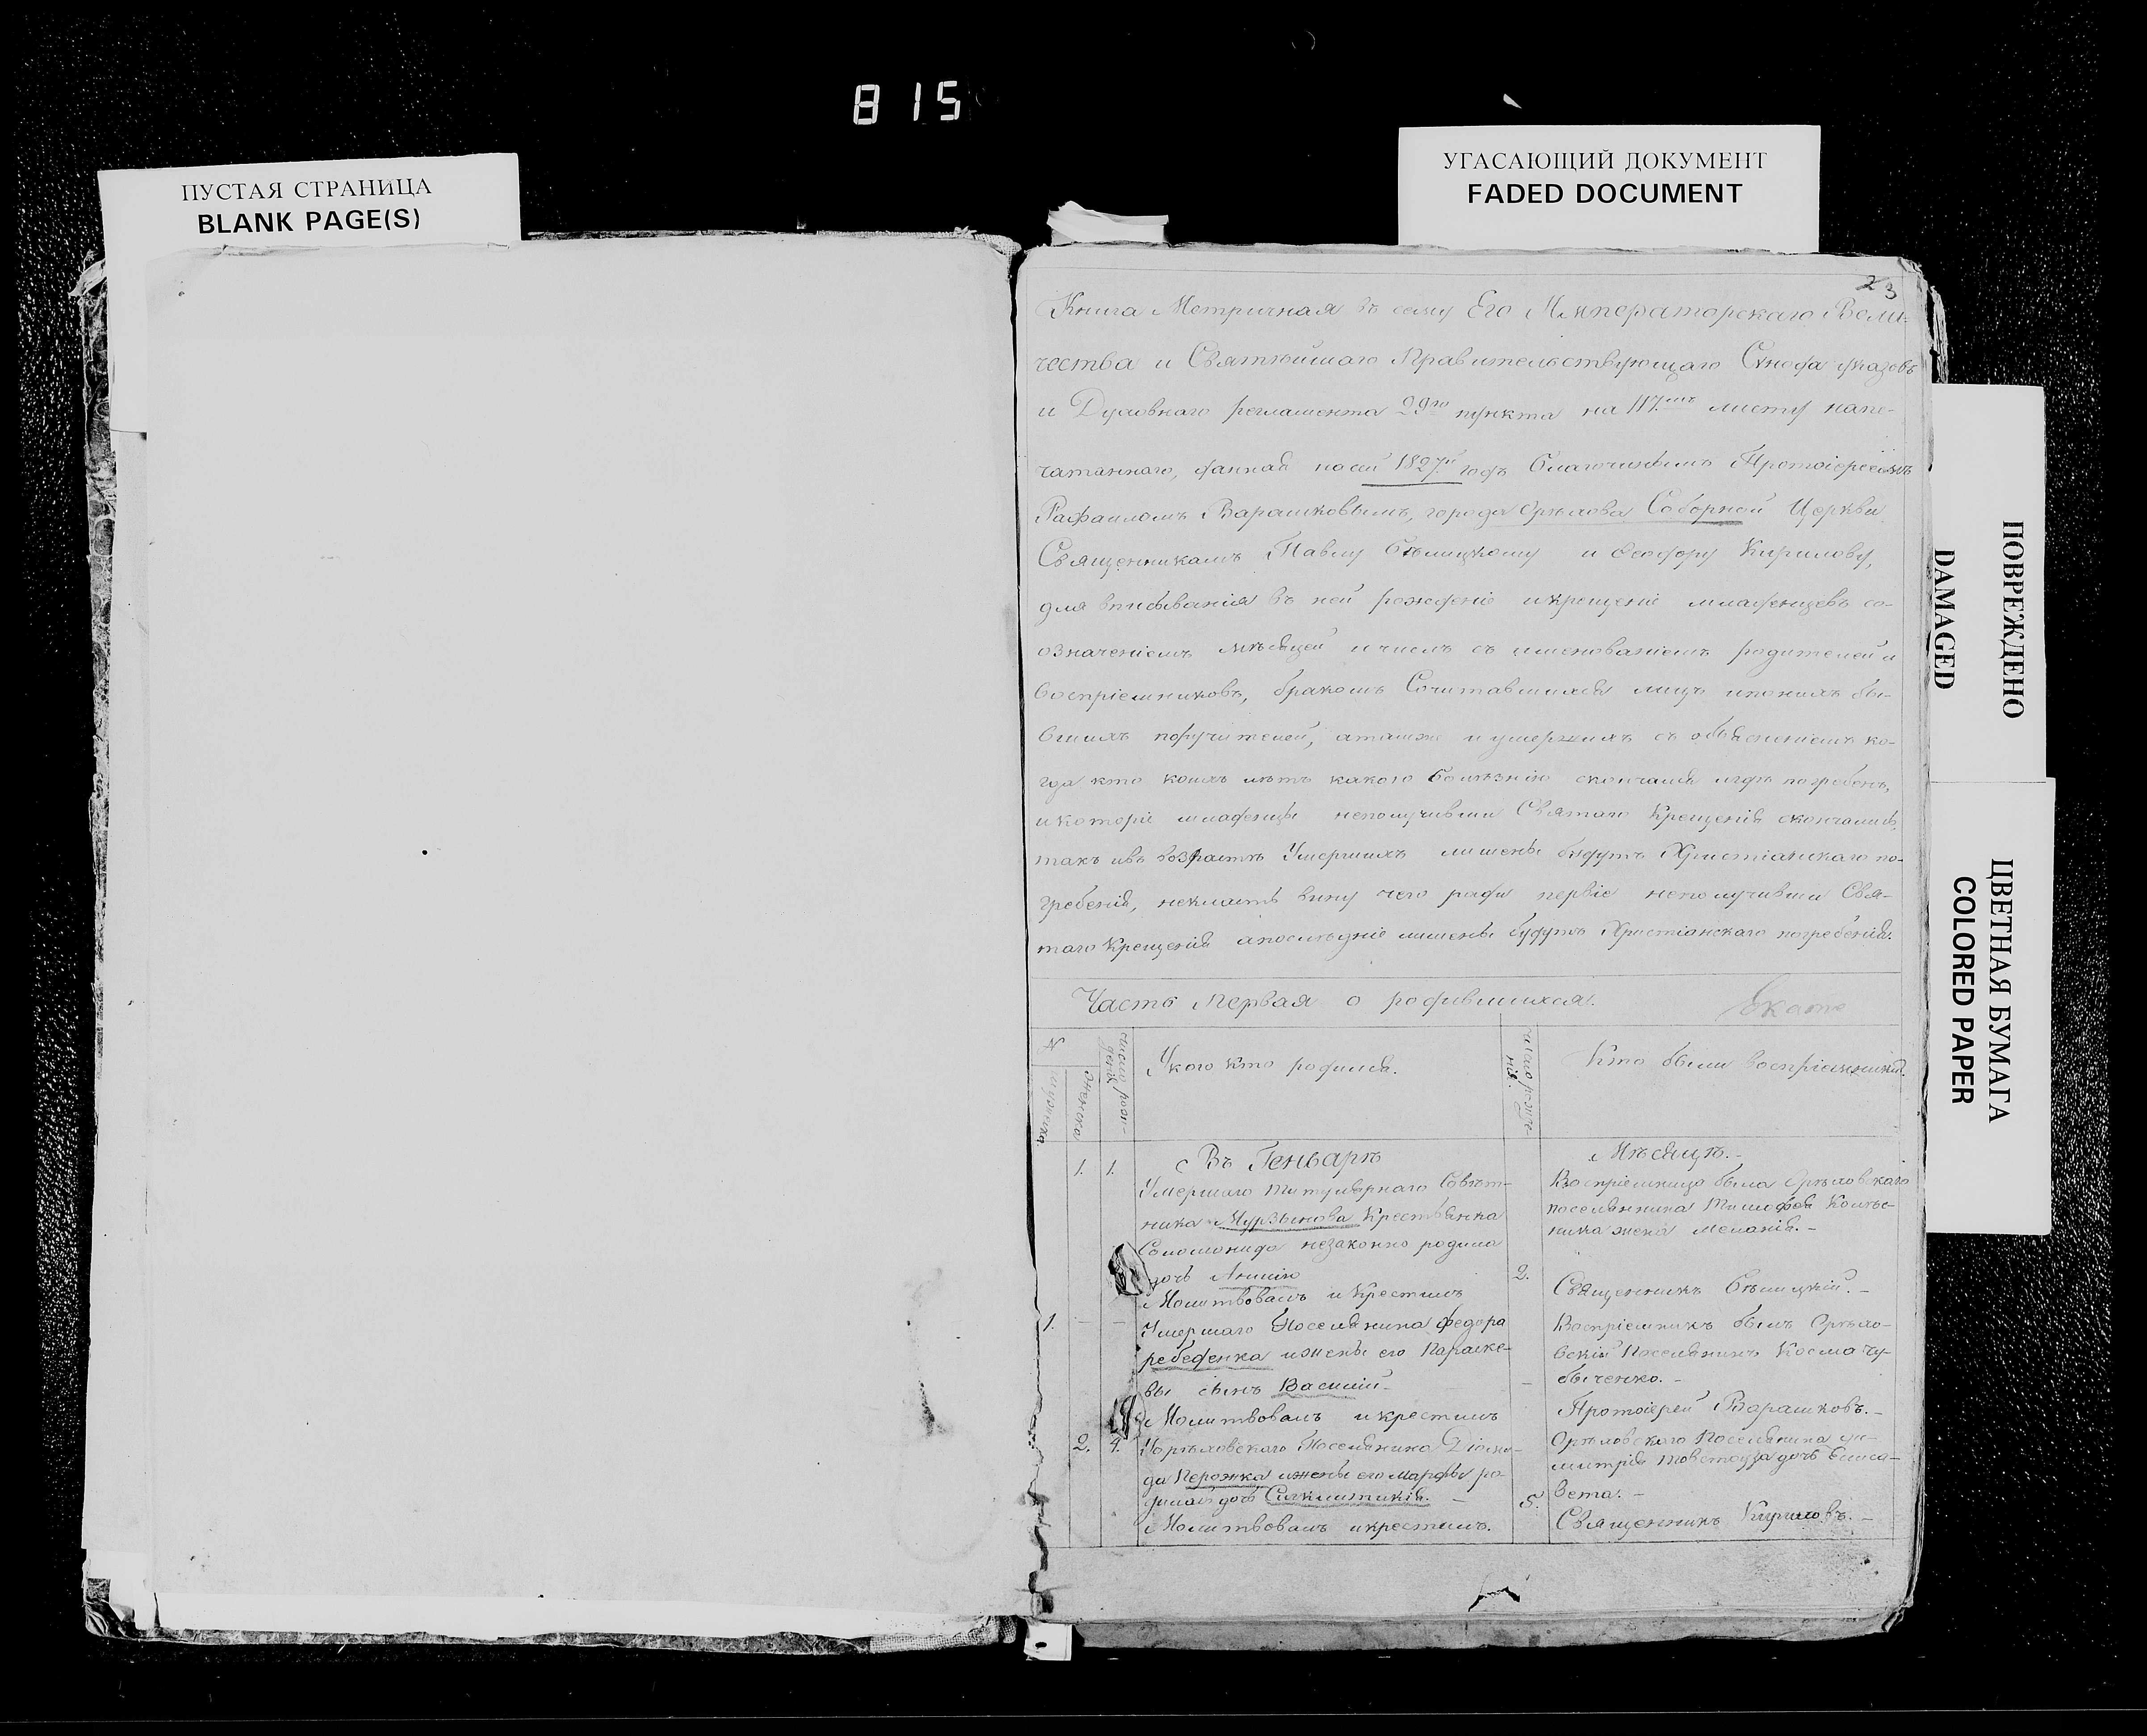 815
ПУСТАЯ СТРАНИЦА
BLANK PAGE(S)
УГАСАЮЩИЙ ДОКУМЕНТ
FADED DOCUMENT
ПОВРЕЖДЕНО
DAMAGED
ЦВЕТНАЯ БУМАГА
COLORED PAPER
2 3
Книга Метричная въ силу Его Императорскаго Вели-
чества и Святѣйшаго Правительствующаго Сѵнода указовъ
и Духовнаго регламента 29го пункта на 117мъ листу напе-
чатаннаго, данная на сей 1827й годъ благочиннымъ Протоіереемъ
Рафаиломъ Варашковымъ, города Орѣхова Соборной Церкви
Священникамъ Павлу Бѣлицкому и Феодору Кирилову,
для вписыванія въ ней рожденіе и крещеніе младенцевъ со-
означеніемъ мѣсяцей и числъ съ именованіемъ родителей и
воспріемниковъ, бракомъ Сочитавшихся лицъ и по нихъ бы-
вшихъ поручителей, а также и умершихъ съ объясненіемъ ко-
гда кто коихъ лѣтъ какою болѣзнію скончался и гдѣ погребенъ,
и которіе младенцы неполучивши Святаго Крещенія скончались,
такъ и въ возрастѣ Умершихъ лишены будутъ Христіанскаго по-
гребенія, некласть вину чего ради первіе неполучивши Свя-
таго Крещенія а послѣдніе лишены будутъ Христіанскаго погребенія.
Часть Первая о родившихся.
№
мужеска
женска
число рож-
денія
У кого кто родился.
число рожде-
нія.
Кто были воспріемники.
Въ Генварѣ
Мѣсяцѣ.-
1. 1.
Умершаго титулярнаго Совѣт-
ника Мурзинова Крестьянка
Соломонида незаконно родила
дочь Аннію
Молитвовалъ и Крестилъ
2.
Воспріемница была Орѣховскаго
поселянина Тимофея Колѣс-
ника жена Меланія.-
Священникъ Бѣлицкій.-
1. - -
Умершаго Поселянина Федора
ребеденка и жены его Параске-
вы сынъ Василій-
Молитвовалъ и крестилъ
-
Воспріемникъ былъ Орѣхо-
вскій Поселянинъ Косма Чу-
быченко.-
Протоіерей Варашковъ.-
2. 4.
Поселянина
да Перожка и жены его Марфы ро-
дилась дочь Сигклитикія.-
Молитвовалъ и крестилъ.
5.
Орѣховскаго Поселянина Ди-
митрія дочь Елиса-
вета.-
Священникъ Кириловъ.-